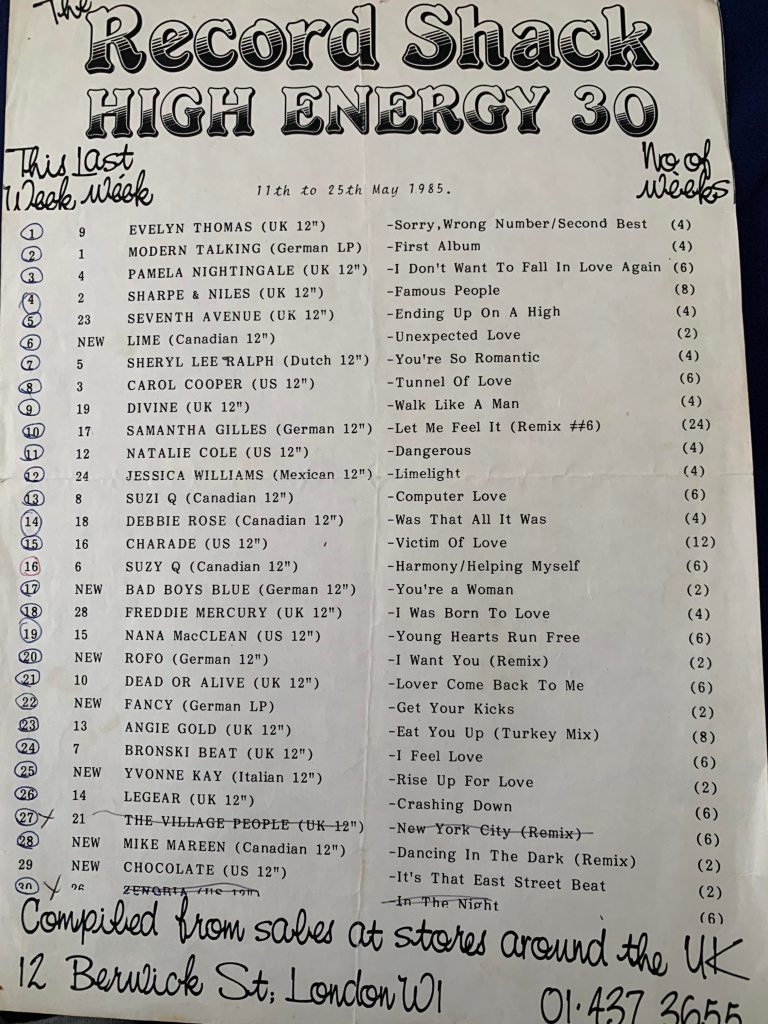 The
Record Shack
HIGH ENERGY 30
This Week Last Week No of Weeks
11th to 25th May 1985.
1 9 EVELYN THOMAS (UK 12") -Sorry,Wrong Number/Second Best (4)
2 1 MODERN TALKING (German LP) -First Album (4)
3 4 PAMELA NIGHTINGALE (UK 12") -I Don't Want To Fall In Love Again (6)
4 2 SHARPE & NILES (UK 12") -Famous People (8)
5 23 SEVENTH AVENUE (UK 12") -Ending Up On A High (4)
6 NEW LIME (Canadian 12") -Unexpected Love (2)
7 5 SHERYL LEE RALPH (Dutch 12") -You're So Romantic (4)
8 3 CAROL COOPER (US 12") -Tunnel Of Love (6)
9 19 DIVINE (UK 12") -Walk Like A Man (4)
10 17 SAMANTHA GILLES (German 12") -Let Me Feel It (Remix ##6) (24)
11 12 NATALIE COLE (US 12") -Dangerous (4)
12 24 JESSICA WILLIAMS (Mexican 12") -Limelight (4)
13 8 SUZI Q (Canadian 12") -Computer Love (6)
14 18 DEBBIE ROSE (Canadian 12") -Was That All It Was (4)
15 16 CHARADE (US 12") -Victim Of Love (12)
16 6 SUZY Q (Canadian 12") -Harmony/Helping Myself (6)
17 NEW BAD BOYS BLUE (German 12") -You're a Woman (2)
18 28 FREDDIE MERCURY (UK 12") -I Was Born To Love (4)
19 15 NANA MacCLEAN (US 12") -Young Hearts Run Free (6)
20 NEW ROFO (German 12") -I Want You (Remix) (2)
21 10 DEAD OR ALIVE (UK 12") -Lover Come Back To Me (6)
22 NEW FANCY (German LP) -Get Your Kicks (2)
23 13 ANGIE GOLD (UK 12") -Eat You Up (Turkey Mix) (8)
24 7 BRONSKI BEAT (UK 12") -I Feel Love (6)
25 NEW YVONNE KAY (Italian 12") -Rise Up For Love (2)
26 14 LEGEAR (UK 12") -Crashing Down (6)
27 21 THE VILLAGE PEOPLE (UK 12") -New York City (Remix) (6)
28 NEW MIKE MAREEN (Canadian 12") -Dancing In The Dark (Remix) (2)
29 NEW CHOCOLATE (US 12") -It's That East Street Beat (2)
30 26 -In The Night (6)
Compiled from sales at stores around the UK
12 Berwick St, London W1 01·437 3655